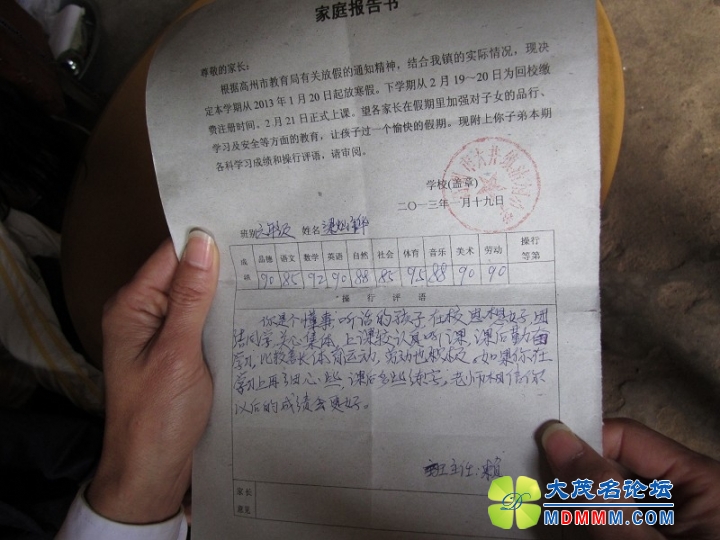 家庭报告书
尊敬的家长:
根据高州市教育局有关放假的通知精神,结合我镇的实际情况,现决
定本学期从2013年1月20日起放寒假。下学期从2月19~20日为回校缴
费注册时间,2月21日正式上课。望各家长在假期里加强对子女的品行、
学习及安全等方面的教育,让孩子过一个愉快的假期。现附上你子弟本期
各科学习成绩和操行评语,请审阅。
学校(盖章)
二〇一三年一月十九日
班别 六年级 姓名 梁
成绩 品德 语文 数学 英语 自然 社会 体育 音乐 美术 劳动 操行等第
90 85 92 90 88 85 95 88 90 90
操行评语
你是个懂事、听话的孩子,在校思想好,团
结同学,关心集体,上课较认真听课,课后勤奋
学习,比较喜长体育运动,劳动也积极。如果你在
学习上再细心些,课后多些练字,老师相信你
以后的成绩会更好。
班主任:
家长意见
大茂名论坛
MDMMM.COM